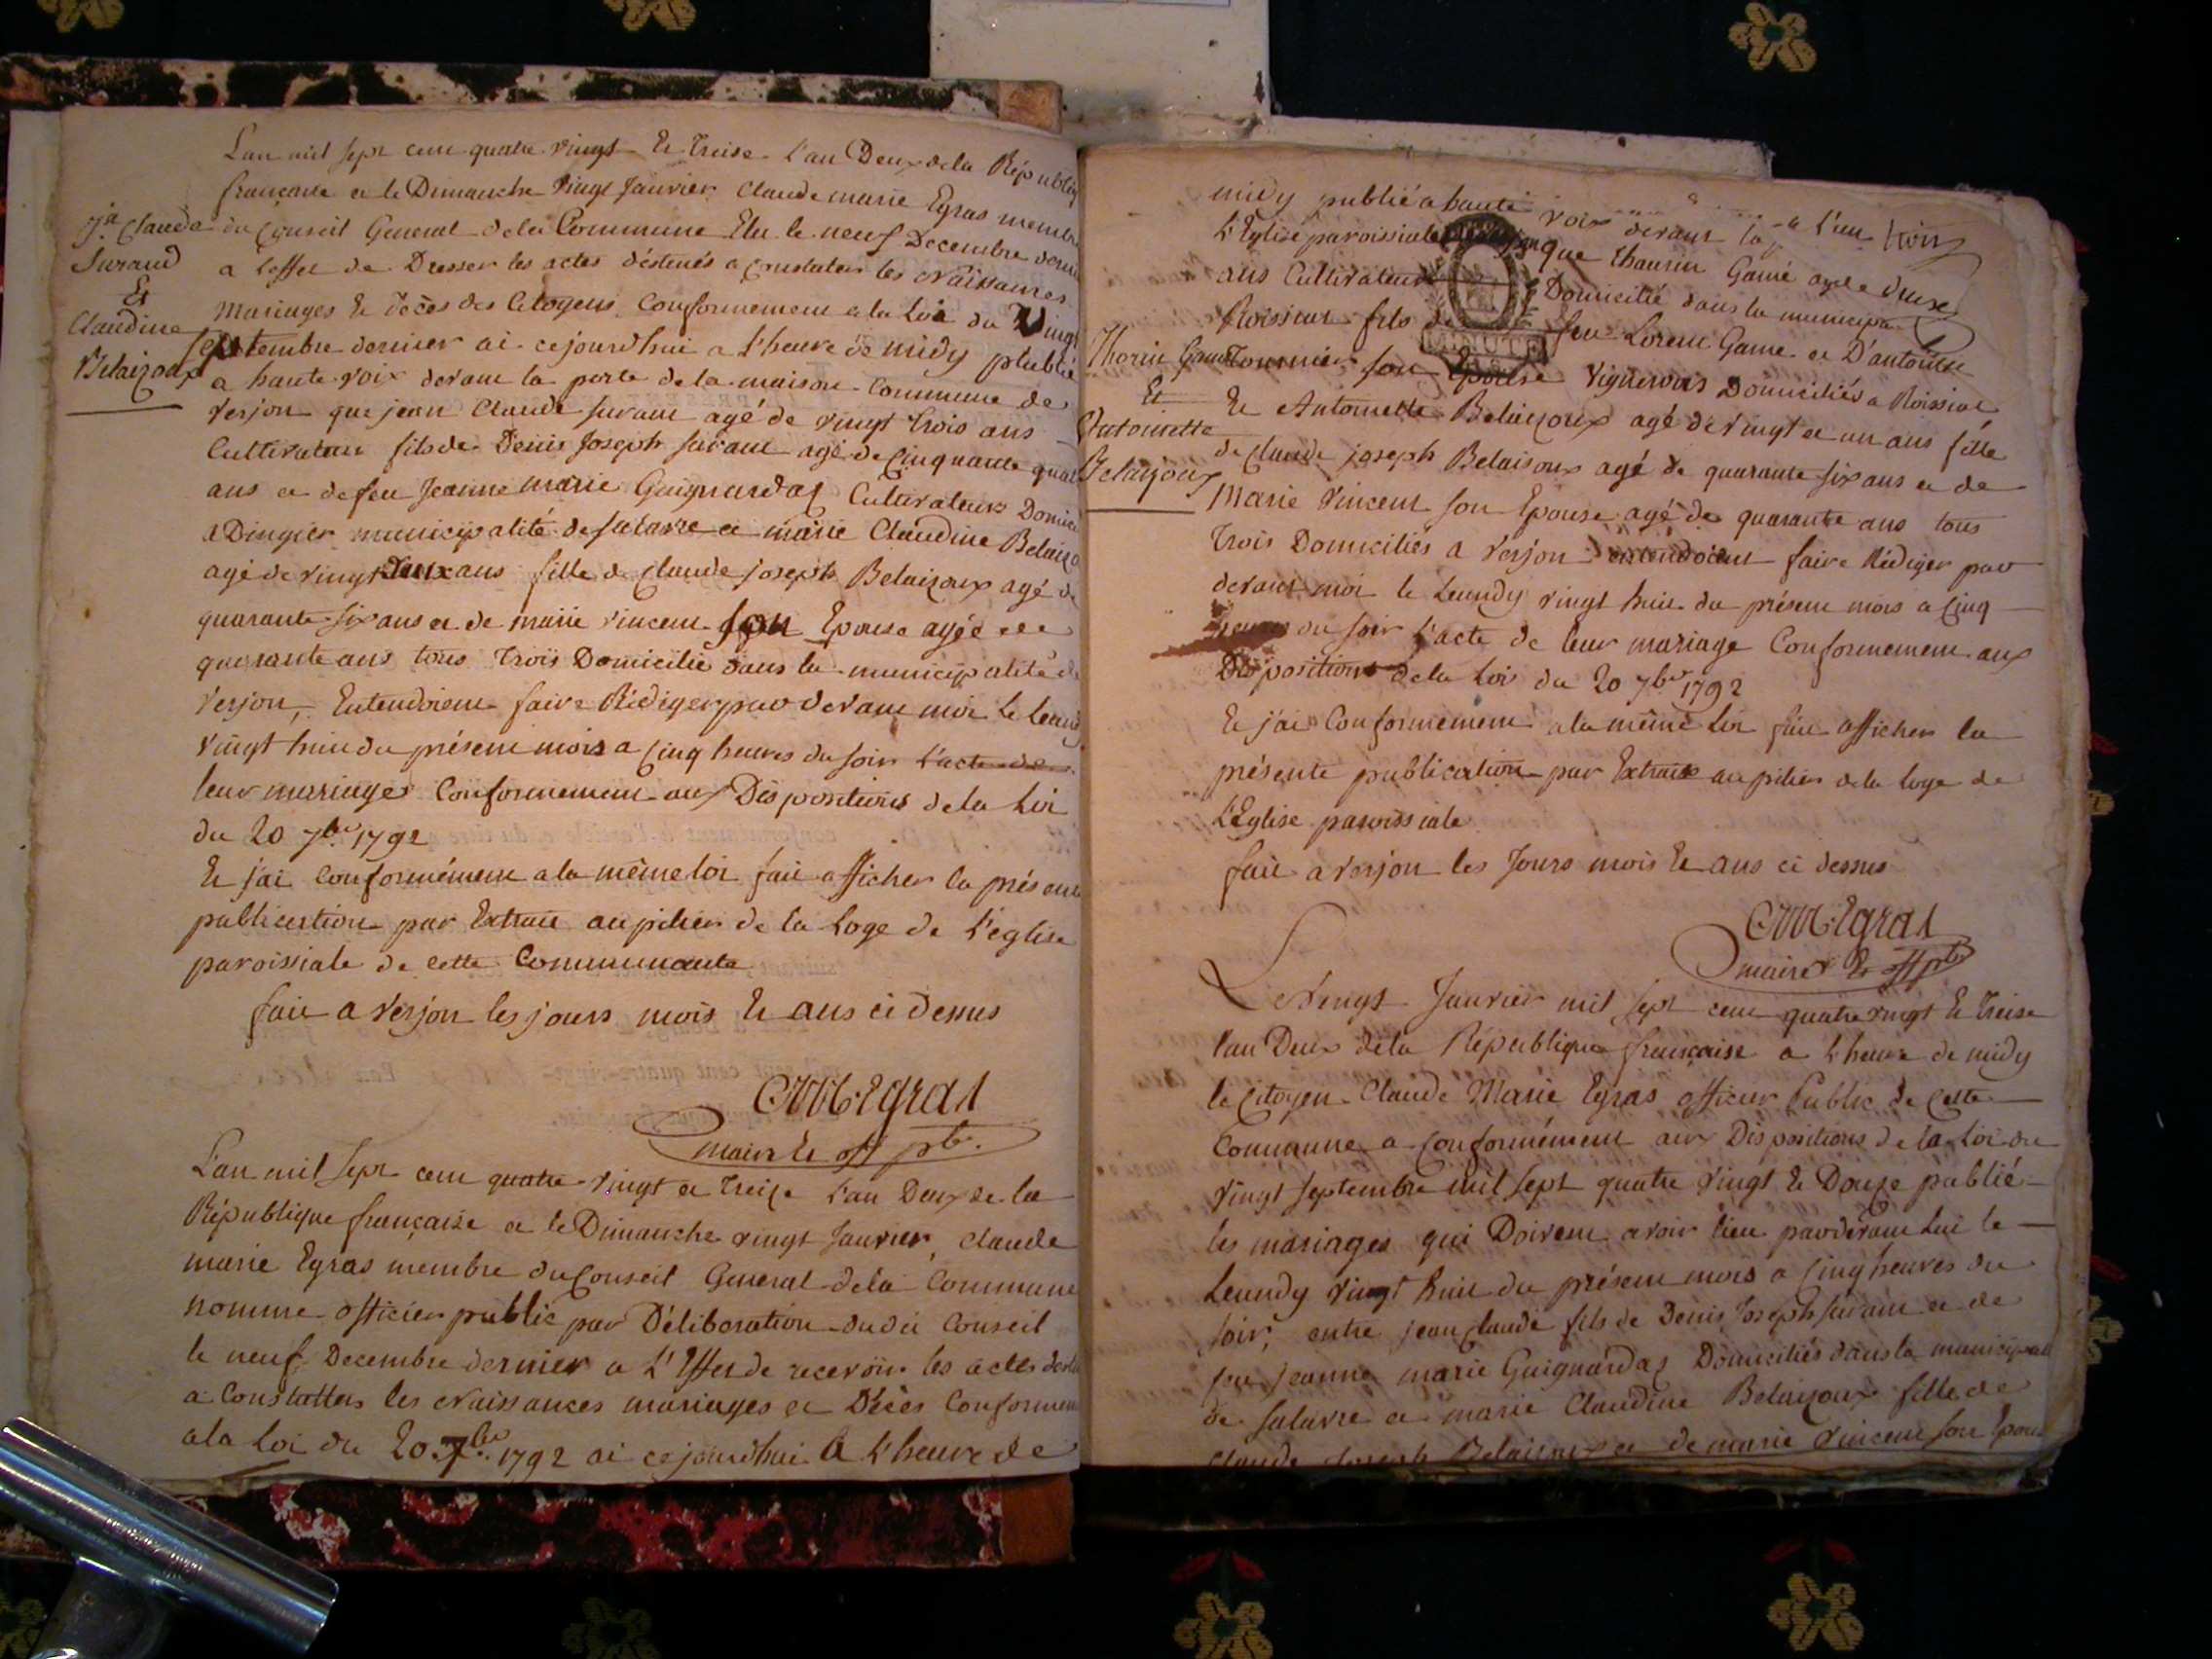 L'an mil sept cent quatre vingt Et Treise L'an Deux dela Républiq
française et le Dimanche Vingt Janvier Claude marie Egras membr
du Conseil General dela Commune Elu le neuf Decembre derni
a leffet de Dresser les actes déstinés a Constater les Naissances
Mariages Et Décès des Citoyens Conformement a la Loi du Vingt
septembre dernier ai cejourdhui a L'heure de midy publié
a haute voix devant la porte de la maison Commune de
Verjon que jean Claude Surant agé de vingt trois ans
Cultivateur fils de Denis Joseph Surant agé de Cinquante quat
ans et de feu Jeanne marie Guignardaz Cultivateurs Domici
a Dingier municipalité de salavre et marie Claudine Belaizo
agé de vingt Deux ans fille de Claude joseph Belaizoux agé de
quarante six ans et de marie vincent son Epouse agée de
quarante ans tous trois Domicilié dans la municipalité de
Verjon, Entendoient faire Rédiger par devant moi le Leundy
Vingt huit du présent mois a Cinq heures du soir L'acte de
leur mariage Conformement aux Dispositions dela Loi
du 20 7bre 1792
Et j'ai Conformément a la même loi fait afficher la présente
publication par Extrait au pilier de la Loge de L'église
paroissiale de cette Communauté
fait a Verjon les jours mois Et ans ci dessus
CMEgras
maire Et off pb.
L'an mil Sept cent quatre Vingt et Treize L'an Deux de la
République française et le Dimanche vingt Janvier, Claude
marie Egras membre du Conseil General dela Commune
nomme officier public par Déliberation dudit Conseil
le neuf Decembre dernier a L'Effet de recevoir les actes destin
a Constatter les Naissances mariages et Décès Conformem
ala Loi du 20 7bre 1792 ai cejourdhui a L'heure de
jn Claude
Surand
Et
Claudine
Belaizoux
midy publié a haute voix devant la
L'Eglise paroissiale que Thaurin Gamé agé de
ans Cultivateur Domicilié dans la municipa
Roissiat fils de feu Lorent Game et D'antoinette
Tournier son Epouse Vignerons Domiciliés a Roissiat
Et Antoinette Belaizoux agé de vingt et un ans fille
de Claude joseph Belaisoux agé de quarante six ans et de
Marie Vincent son Epouse agé de quarante ans tous
Trois Domiciliés a Verjon entendoient faire Rédiger par
devant moi le Leundy vingt huit du présent mois a Cinq
heures du soir L'acte de leur mariage Conformement aux
Dispositions dela Loi du 20 7bre 1792
Et j'ai Conformement a la même Loi fait afficher la
présente publication par Extrait au pilier dela loge de
L'Eglise paroissiale
fait a Verjon les Jours mois Et ans ci dessus
CMEgras
maire Et off pb
Thorin Game
Et
Antoinette
Belaizoux
Le Vingt Janvier mil sept cent quatre vingt Et Treise
l'an Deux dela République française a L'heure de midy
le Citoyen Claude Marie Egras officier Public de Cette
Commune a Conformément aux Dispositions de la Loi du
vingt septembre mil sept quatre Vingt Et Douze publié
les mariages qui Doivent avoir lieu pardevant Lui le
Leundy Vingt huit du présent mois a Cinq heures du
soir, entre jean Claude fils de Denis Joseph Surant et de
feu jeanne marie Guignardaz Domiciliés dans la municipali
de Salavre et marie Claudine Belaizoux fille de
Claude Joseph Belaisoux et de marie Vincent son Epous